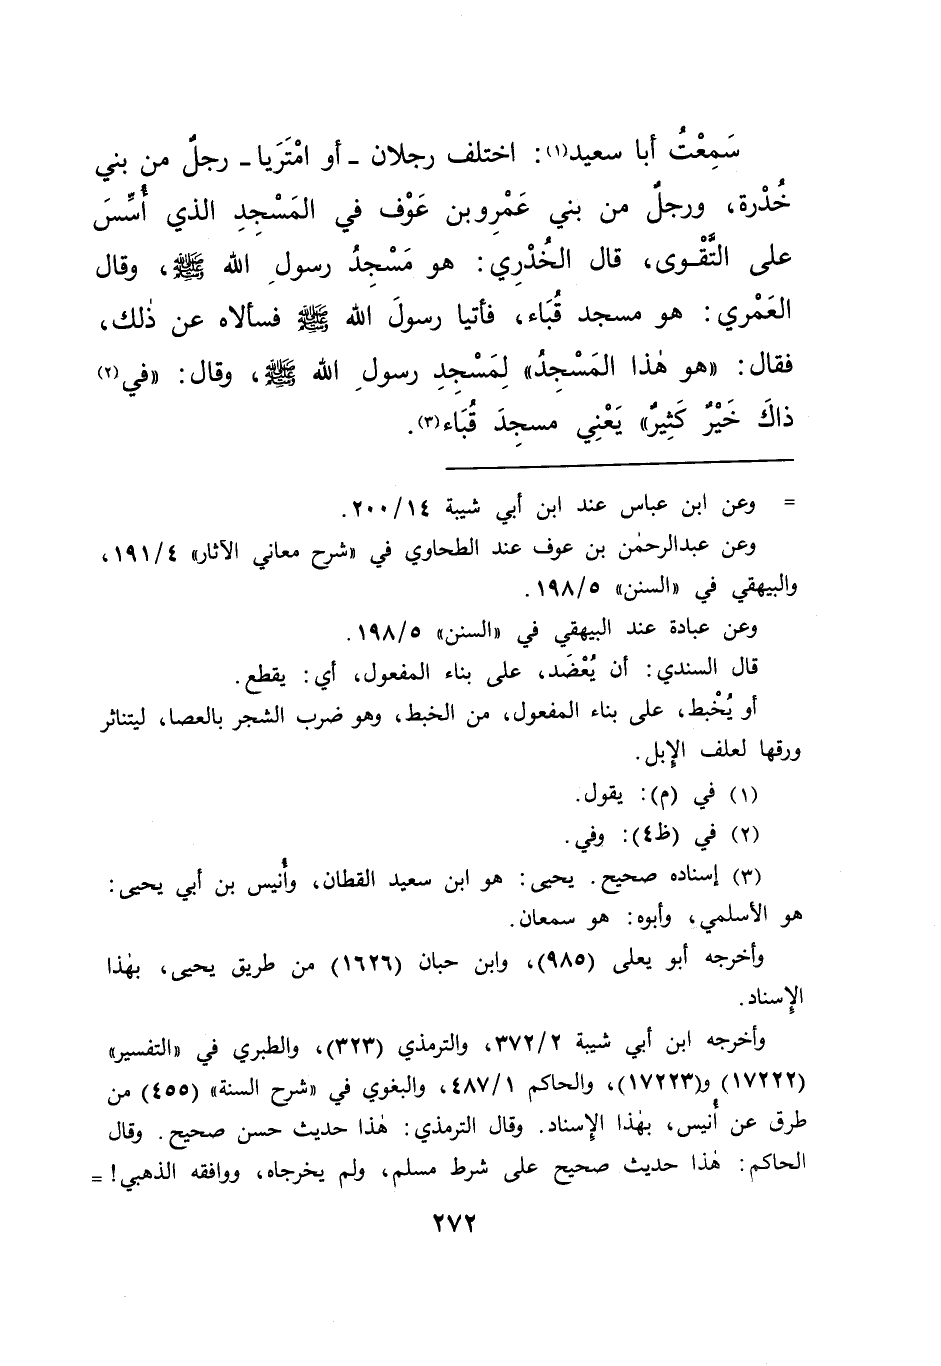 سَمِعْتُ أبا سعيد(١): اختلف رجلان ـ أو امْتَرَيا ـ رجلٌ من بني
خُدْرة، ورجلٌ من بني عَمْرِو بن عَوْف في المَسْجِدِ الذي أُسِّسَ
على التَّقْوى، قال الخُدْرِي: هو مَسْجِدُ رسولِ الله ﷺ، وقال
العَمْري: هو مسجد قُبَاء، فأتيا رسولَ الله ﷺ فسألاه عن ذٰلك،
فقال: «هو هٰذا المَسْجِدُ» لِمَسْجِدِ رسولِ الله ﷺ، وقال: «في(٢)
ذاكَ خَيْرٌ كَثِيرٌ» يَعْنِي مسجِدَ قُبَاء(٣).
= وعن ابن عباس عند ابن أبي شيبة ٢٠٠/١٤.
وعن عبدالرحمٰن بن عوف عند الطحاوي في «شرح معاني الآثار» ١٩١/٤،
والبيهقي في «السنن» ١٩٨/٥.
وعن عبادة عند البيهقي في «السنن» ١٩٨/٥.
قال السندي: أن يُعْضَد، على بناء المفعول، أي: يقطع.
أو يُخْبط، على بناء المفعول، من الخبط، وهو ضرب الشجر بالعصا، ليتناثر
ورقها لعلف الإِبل.
(١) في (م): يقول.
(٢) في (ظ٤): وفي.
(٣) إسناده صحيح. يحيى: هو ابن سعيد القطان، وأُنيس بن أبي يحيى:
هو الأسلمي، وأبوه: هو سمعان.
وأخرجه أبو يعلى (٩٨٥)، وابن حبان (١٦٢٦) من طريق يحيى، بهٰذا
الإِسناد.
وأخرجه ابن أبي شيبة ٣٧٢/٢، والترمذي (٣٢٣)، والطبري في «التفسير»
(١٧٢٢٢) و(١٧٢٢٣)، والحاكم ٤٨٧/١، والبغوي في «شرح السنة» (٤٥٥) من
طرق عن أُنيس، بهٰذا الإِسناد. وقال الترمذي: هٰذا حديث حسن صحيح. وقال
الحاكم: هٰذا حديث صحيح على شرط مسلم، ولم يخرجاه، ووافقه الذهبي! =
٢٧٢